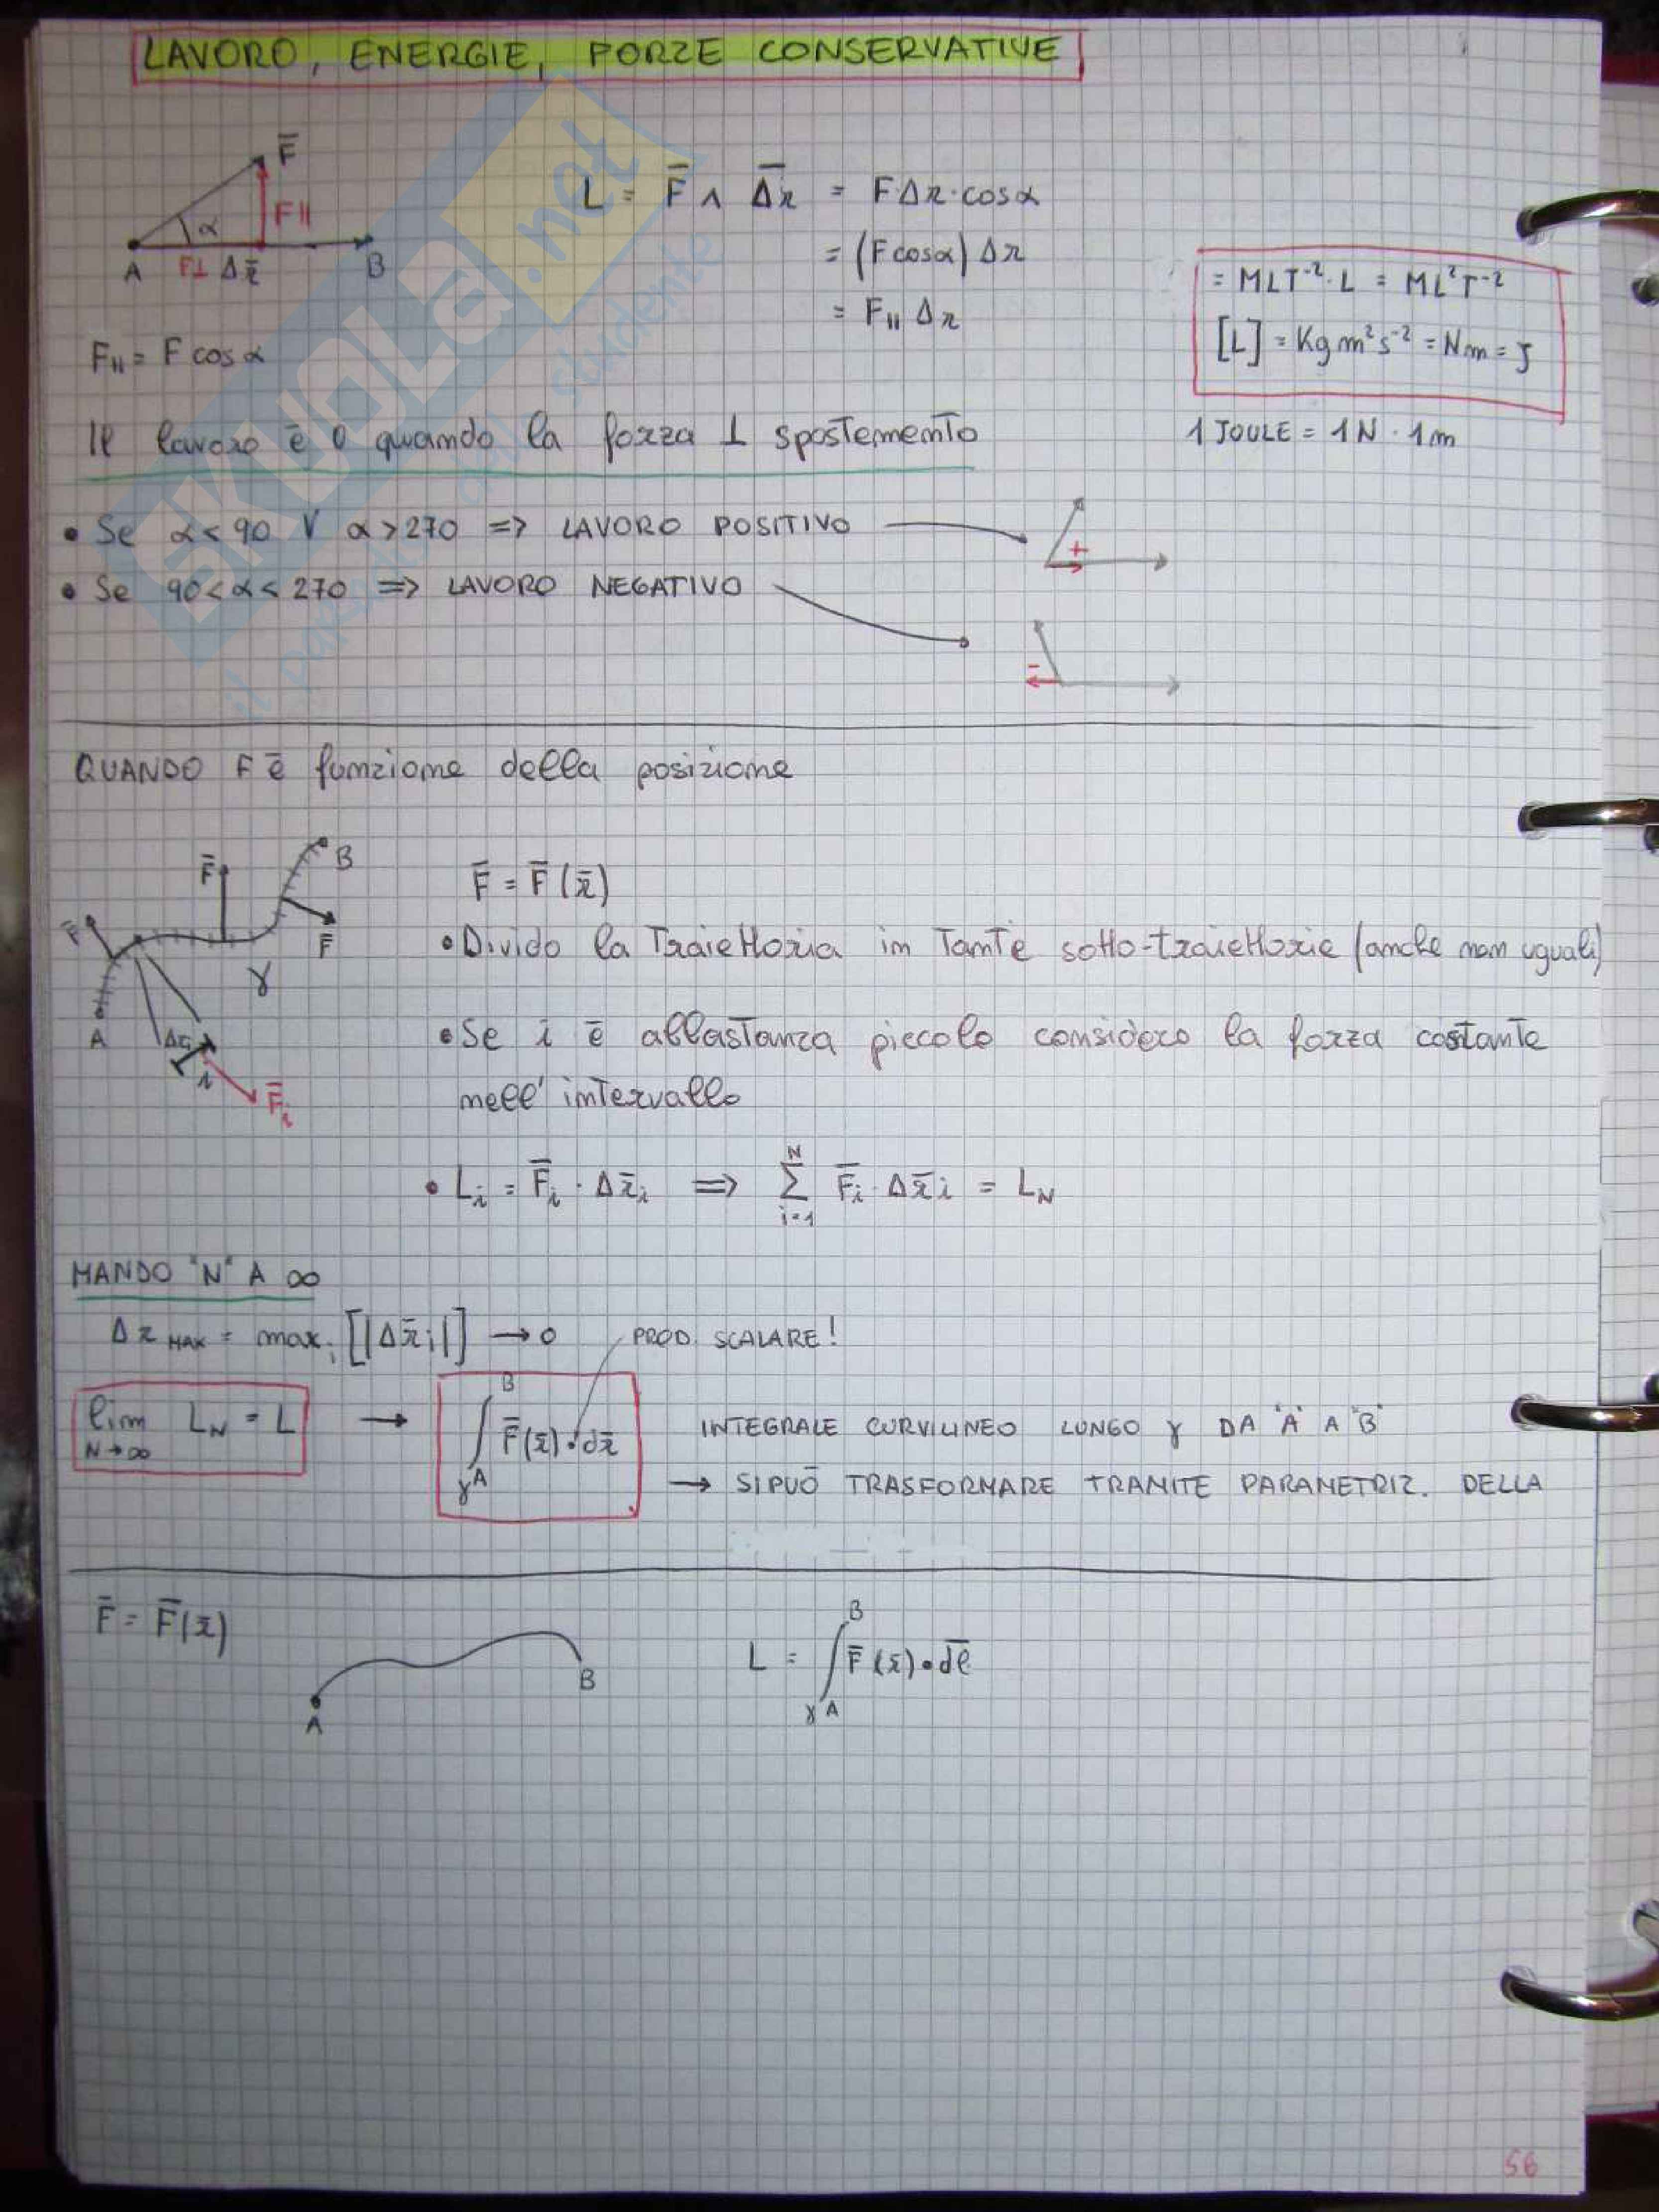 LAVORO, ENERGIE, FORZE CONSERVATIVE
F̄
α
F∥
A F⊥ Δr̄ B
L = F̄ ∧ Δ̄r = FΔr·cosα
= (F cosα) Δr
= F∥ Δr
F∥ = F cos α
= MLT⁻²·L = ML²T⁻²
[L] = Kg m² s⁻² = Nm = J
1 JOULE = 1N · 1m
Il lavoro è 0 quando la forza ⊥ spostemento
• Se α<90 V α>270 => LAVORO POSITIVO
+
• Se 90<α<270 => LAVORO NEGATIVO
-
QUANDO F è funzione della posizione
F̄
F̄
B
F̄
γ
A
Δr̄i
i
F̄i
F̄ = F̄(r̄)
• Divido la Traiettoria in Tante sotto-traiettorie (anche non uguali)
• Se i è abbastanza piccolo considero la forza costante
nell' intervallo
• Li = F̄i · Δr̄i => ∑ i=1 N F̄i · Δr̄i = LN
MANDO "N" A ∞
Δr MAX = max i [|Δr̄i|] → 0
PROD. SCALARE!
lim N→∞ LN = L → ∫ γA B F̄(r̄)•dr̄
INTEGRALE CURVILINEO LUNGO γ DA "A" A "B"
→ SI PUÒ TRASFORMARE TRAMITE PARAMETRIZ. DELLA
F̄ = F̄(r̄)
A
B
L = ∫ γA B F̄(r̄)•dl̄
56
SKUOLA.net
il paradiso dello studente